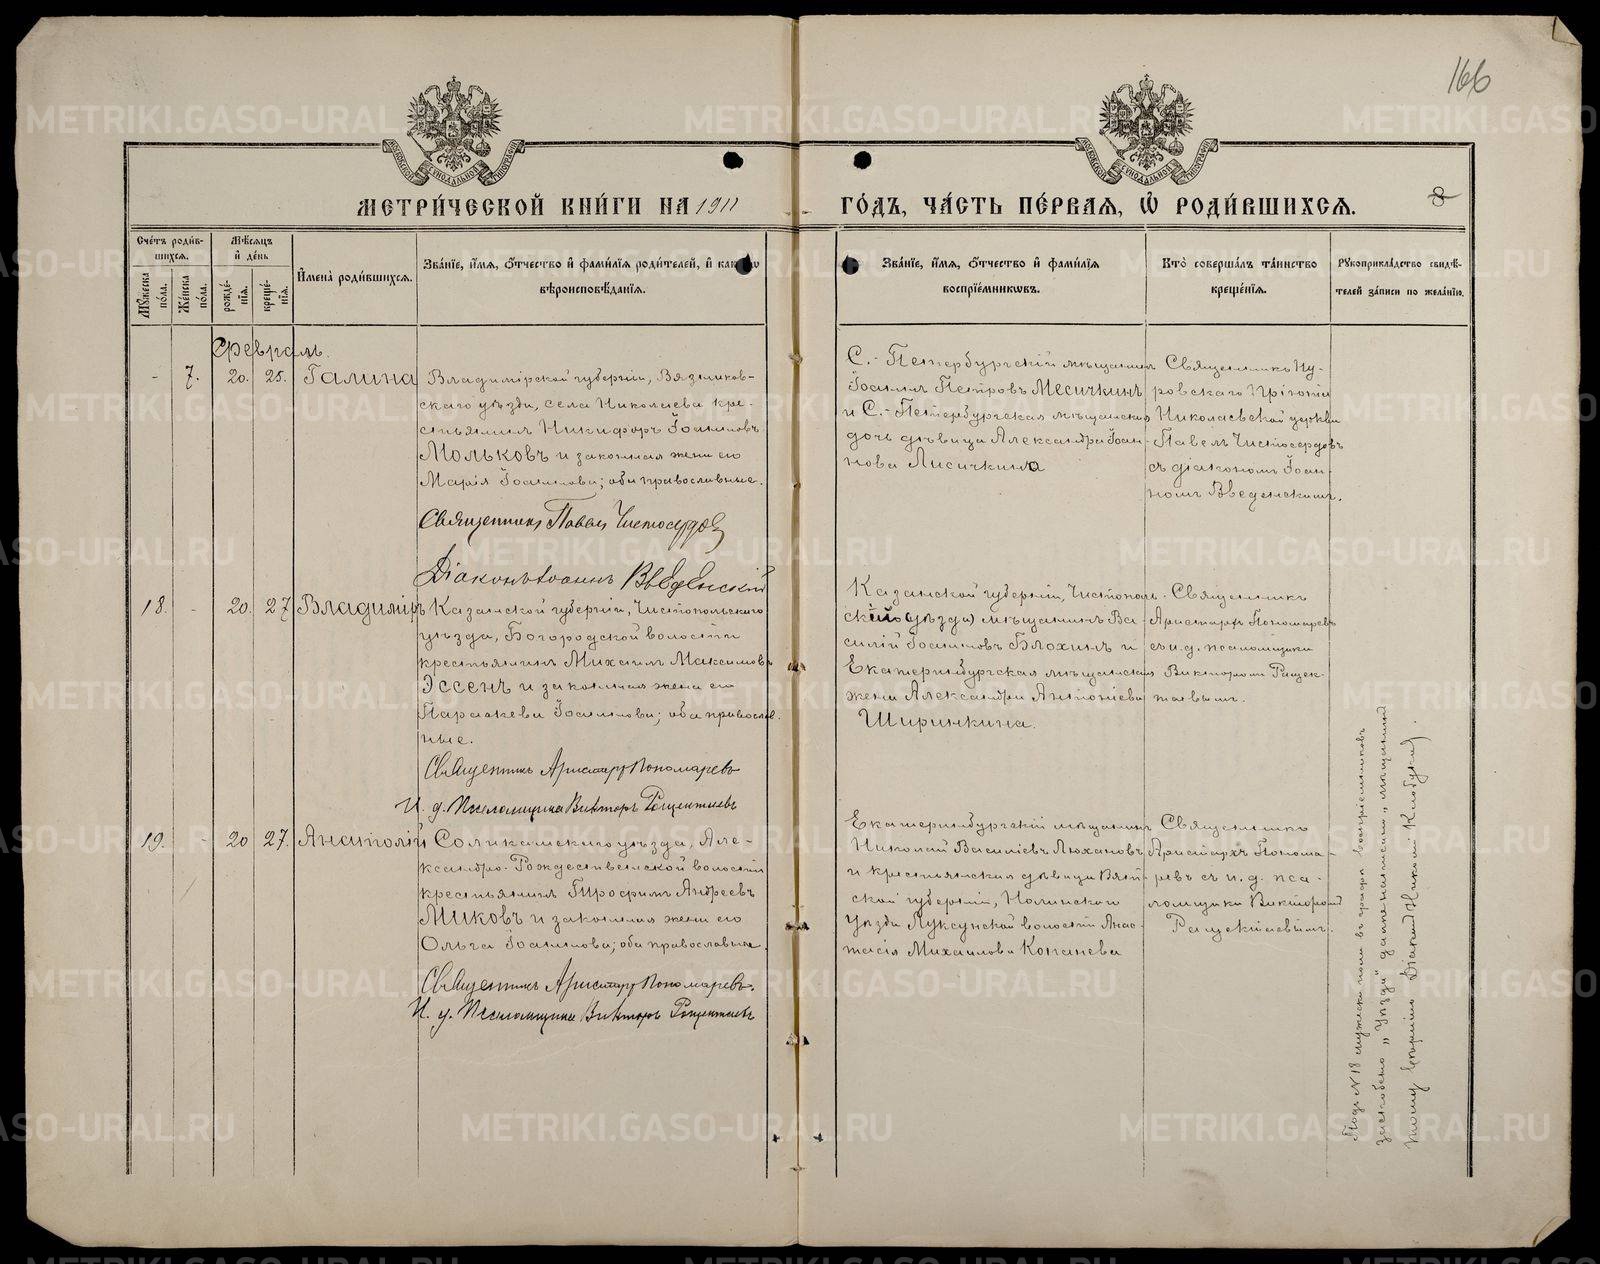 166
МОСКОВСКОЙ СѴНОДАЛЬНОЙ ТИПОГРАФІИ
МОСКОВСКОЙ СѴНОДАЛЬНОЙ ТИПОГРАФІИ
МЕТРИ́ЧЕСКОЙ КНИ́ГИ НА 1911
ГО́ДЪ, ЧА́СТЬ ПЕ́РВАЯ, Ѡ РОДИ́ВШИХСЯ.
8
Сче́тъ роди́в-
шихся.
Мꙋ́жеска по́ла.
Же́нска по́ла.
Мѣ́сяцъ и де́нь
рожде́нїя.
креще́нїя.
И҆мена̀ роди́вшихся.
Зва́нїе, и҆́мя, ѻ҆́тчество и҆ фами́лїя роди́телей, и҆ како́гѡ
вѣроисповѣ́данїя.
Зва́нїе, и҆́мя, ѻ҆́тчество и҆ фами́лїя
воспрїе́мникѡвъ.
Кто̀ соверша́лъ та́инство
креще́нїя.
Рꙋкоприкла́дство свидѣ́-
телей за́писи по жела́нїю.
Февраль.
- 7. 20. 25. Галина
Владимірской губерніи, Вязников-
скаго уѣзда, села Николаева кре-
стьянинъ Никифоръ Іоанновъ
Мольковъ и законная жена его
Марія Іоаннова; оба православные.
Священникъ Павелъ Чистосердовъ
Діаконъ Іоаннъ Введенскій
С.-Петербургскій мѣщанинъ
Іоаннъ Петровъ Месичкинъ
и С.-Петербургская мѣщанская
дочь дѣвица Александра Іоан-
нова Лисичкина
Священникъ Ну-
ровскаго Пріюта
Николаевской церкви
Павелъ Чистосердовъ
съ діакономъ Іоан-
номъ Введенскимъ.
18. - 20. 27 Владиміръ
Казанской губерніи, Чистопольскаго
уѣзда, Богородской волости
крестьянинъ Михаилъ Максимовъ
Эссенъ и законная жена его
Параскева Іоаннова; оба православ-
ные.
Священникъ Аристархъ Пономаревъ
И. д. Псаломщика Викторъ Ращектаевъ
Казанской губерніи, Чистополь-
скій (уѣзда) мѣщанинъ Ва-
силій Іоанновъ Блохинъ и
Екатеринбургская мѣщанская
жена Александра Антоніева
Ширинкина.
Священникъ
Аристархъ Пономаревъ
съ и. д. псаломщика
Викторомъ Ращек-
таевымъ.
19. - 20 27. Анатолій
Соликамскаго уѣзда, Але-
ксандро-Рождественской волости
крестьянинъ Трофимъ Андреевъ
Миковъ и законная жена его
Ольга Іоаннова; оба православные.
Священникъ Аристархъ Пономаревъ.
И. д. Псаломщика Викторъ Ращектаевъ
Екатеринбургскій мѣщанинъ
Николай Василіевъ Люхановъ
и крестьянская дѣвица Вят-
ской губерніи, Нолинскаго
уѣзда Луксунской волости Анас-
тасія Михаилова Копанева
Священникъ
Аристархъ Понома-
ревъ съ и. д. пса-
ломщика Викторомъ
Ращектаевымъ.
Подъ № 18 мужеска пола въ графѣ воспріемниковъ
заскоблено „уѣзда" далѣе написано „мѣщанинъ"
тому вѣрить Діаконъ Николай Клобуки